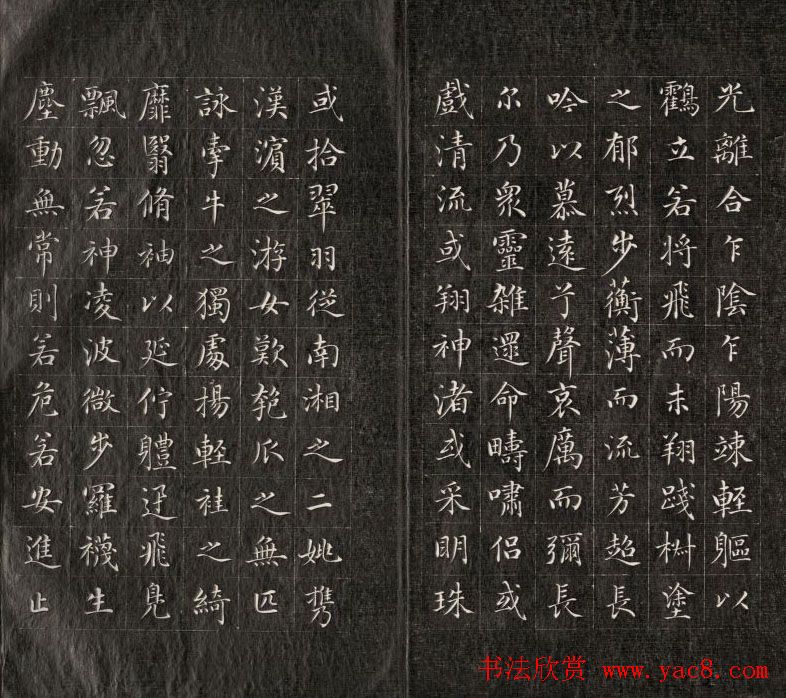 光離合乍陰乍陽竦輕軀以
鸖立若将飛而未翔踐椒塗
之郁烈步蘅薄而流芳超長
吟以慕遠兮聲哀厲而彌長
尔乃衆靈雑遝命疇嘯侣或
戲清流或翔神渚或采眀珠
或拾翠羽従南湘之二姚携
漢濱之游女歎匏瓜之無匹
詠牽牛之獨處揚軽袿之綺
靡翳脩袖以延佇軆迅飛鳬
飄忽若神凌波微步羅襪生
塵動無常則若危若安進止
书法欣赏 www.yac8.com